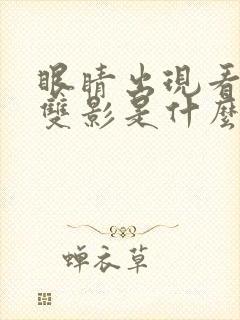 眼睛出現看
雙影是什麼
蝉衣草